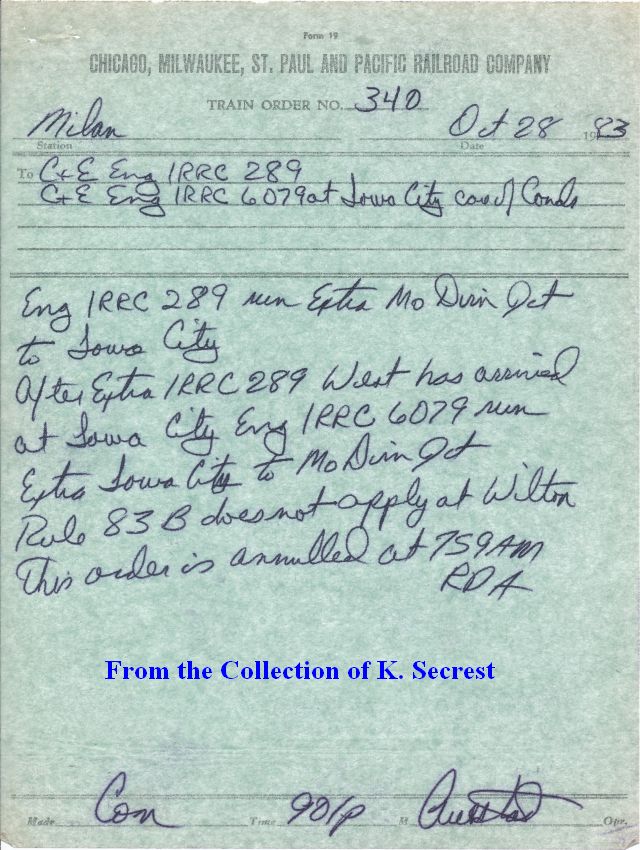 Form 19
CHICAGO, MILWAUKEE, ST. PAUL AND PACIFIC RAILROAD COMPANY
TRAIN ORDER NO. 340
Milan Oct 28 1983
Station Date
To C+E Eng IRRC 289
C+E Eng IRRC 6079 at Iowa City care of Conds
Eng IRRC 289 run Extra Mo Divn Jct
to Iowa City
After Extra IRRC 289 West has arrived
at Iowa City Eng IRRC 6079 run
Extra Iowa City to Mo Divn Jct
Rule 83 B does not apply at Wilton
This order is annulled at 759 AM
RDA
From the Collection of K. Secrest
Made Com Time 901p M Opr.